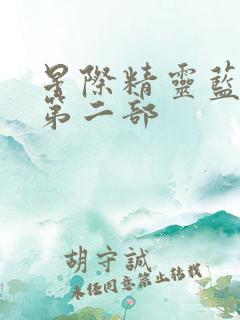 星際精靈藍
第二部
胡守誠
未經同意禁止轉載